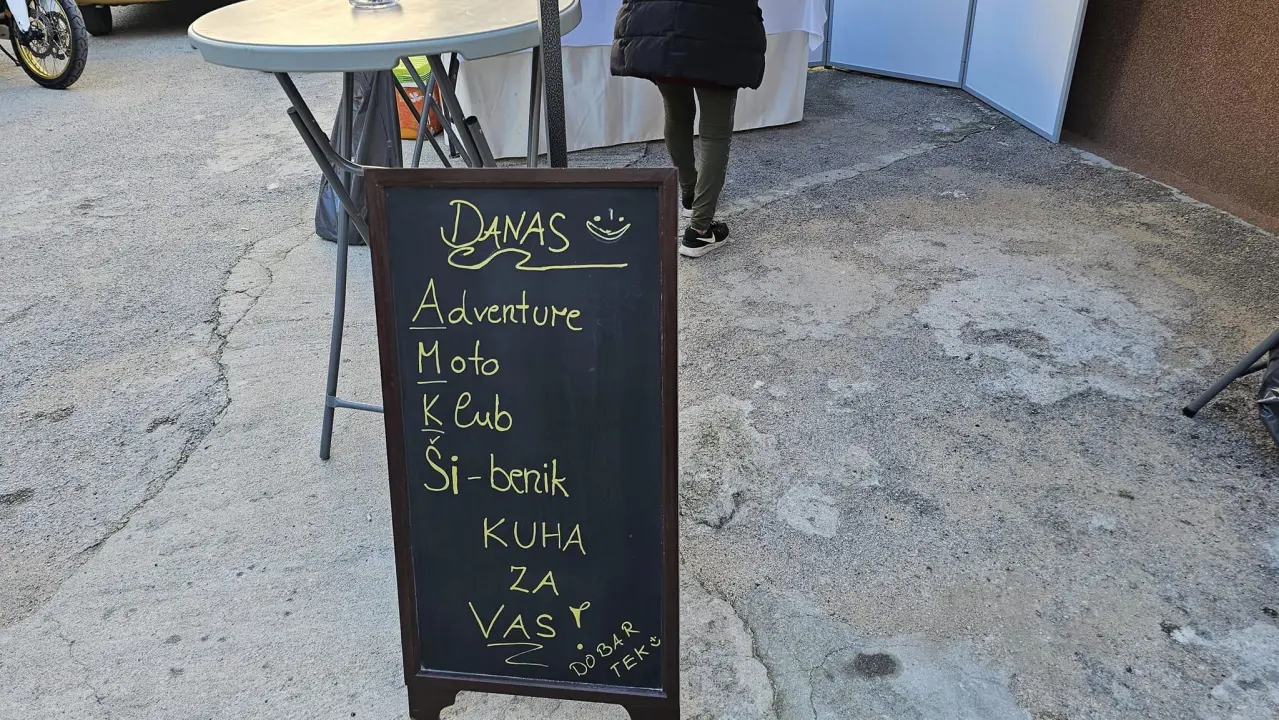 DANAS
Adventure
Moto
Klub
Ši-benik
KUHA
ZA
VAS!
DOBAR
TEK